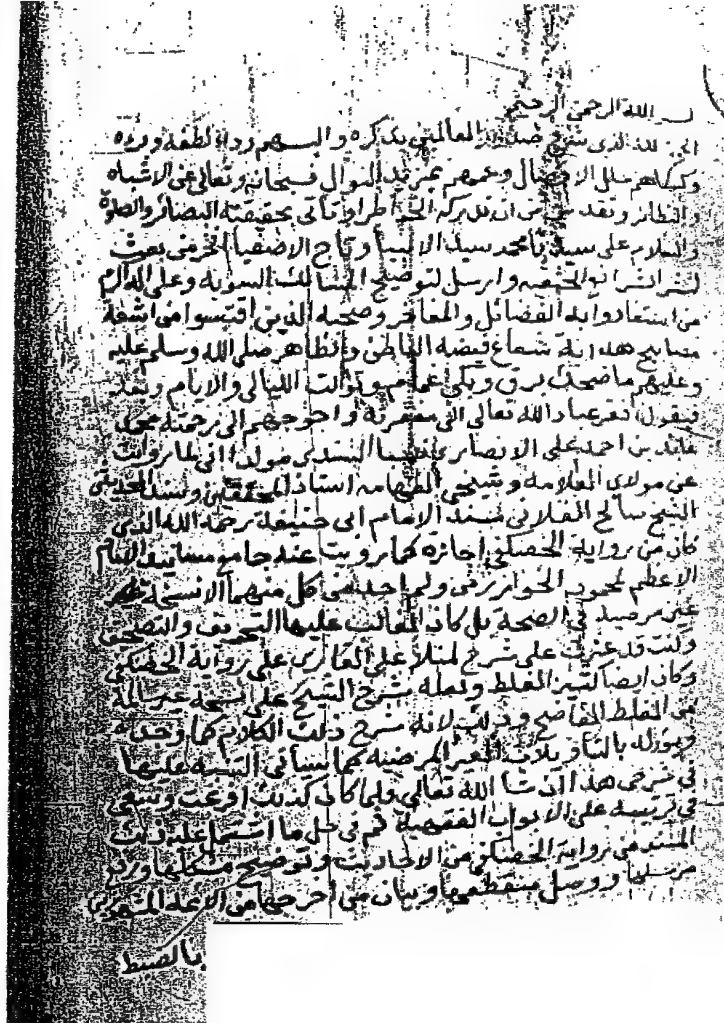 بسم الله الرحمن الرحيم
الحمد لله الذي شرح صدور العالمين بذكره والبسهم رداء لطفه وبره
وكساهم حلل الافضال وعمهم بمزيد النوال فسبحانه وتعالى عن الاشباه
والنظائر وتقدس من ان تدركه الخواطر او تأتي بحقيقته البصائر والصلاة
والسلام على سيدنا محمد سيد الانبيا وتاج الاصفيا الذي بعث
لنشر الشرائع الحنيفيه وارسل لتوضيح المسالك السويه وعلى اله الذين
استفادوا به الفضائل والمفاخر وصحبه الذين اقتبسوا من اشعة
مصابيح هدايته شعاع فيضه الباطن والظاهر صلى الله وسلم عليه
وعليهم ما ضحك برق وبكى غمام وتوالت الليالي والايام وبعد
فيقول افقر عباد الله تعالى الى مغفرته واحوجهم الى رحمته محمد
عابد بن احمد على الانصاري نسبا السندي مولدا اني لما رويت
عن مولاي العلامه وشيخي الفهامه استاذ المحققين وسند المدققين
الشيخ صالح الفلاني مسند الامام ابي حنيفة رحمه الله الذي
كان من رواية الحصكفي اجازه كما رويت عنه جامع مسانيد الامام
الاعظم لمحمود الخوارزمي ولم اجد من كل منهما الا نسخة
غير مرضية في الصحة بل كان الغالب عليها التحريف والتصحيف
وكنت قد عثرت على شرح لمنلا على القاري على رواية الحصكفي
وكان ايضا كثير الغلط ولعله شرح الشيخ على نسخة غير سالمة
من الغلط الفاضح وذلك لانه شرح ذلك الكلام كما وجده
ويؤوله بالتاويلات الغير المرضيه كما سياتي التنبيه عليها
في شرحي هذا ان شا الله تعالى ولما كان كذلك افرغت وسعي
في ترتيبه على الابواب الفقهية ثم في حل ما اشتمل عليه ذلك
المسند من رواية الحصكفي من الاحاديث وتوضيح مشكلها ورفع
مرسلها ووصل منقطعها وبيان من اخرجها من الائمة المشهورين
بالضبط